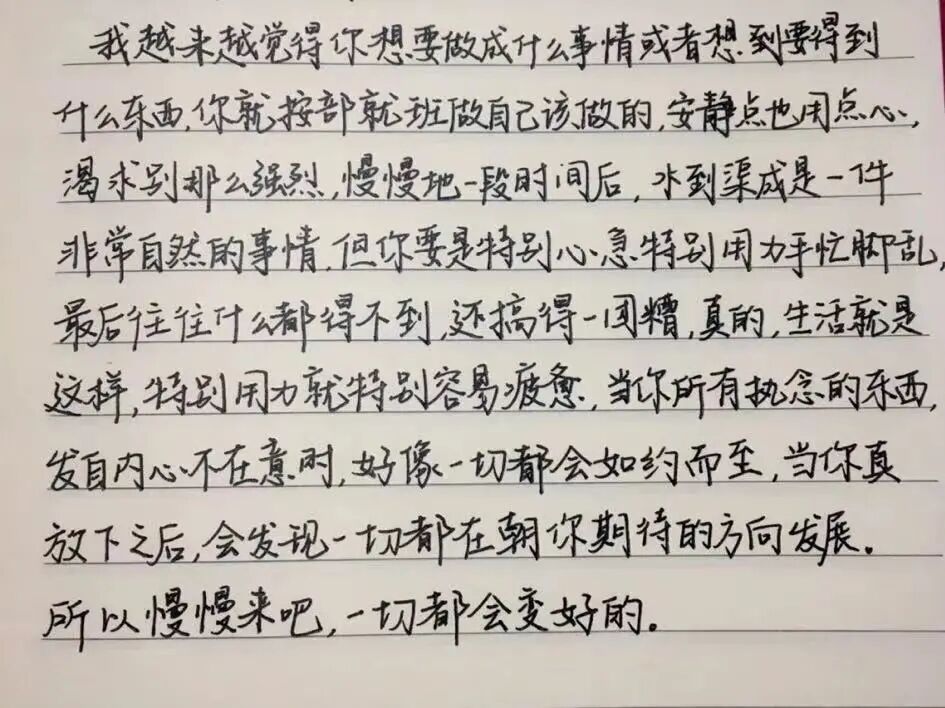 我越来越觉得你想要做成什么事情或者想到要得到
什么东西,你就按部就班做自己该做的,安静点也用点心,
渴求别那么强烈,慢慢地一段时间后,水到渠成是一件
非常自然的事情.但你要是特别心急特别用力手忙脚乱,
最后往往什么都得不到,还搞得一团糟,真的,生活就是
这样,特别用力就特别容易疲惫.当你所有执念的东西,
发自内心不在意时,好像一切都会如约而至,当你真
放下之后,会发现一切都在朝你期待的方向发展。
所以慢慢来吧,一切都会变好的。